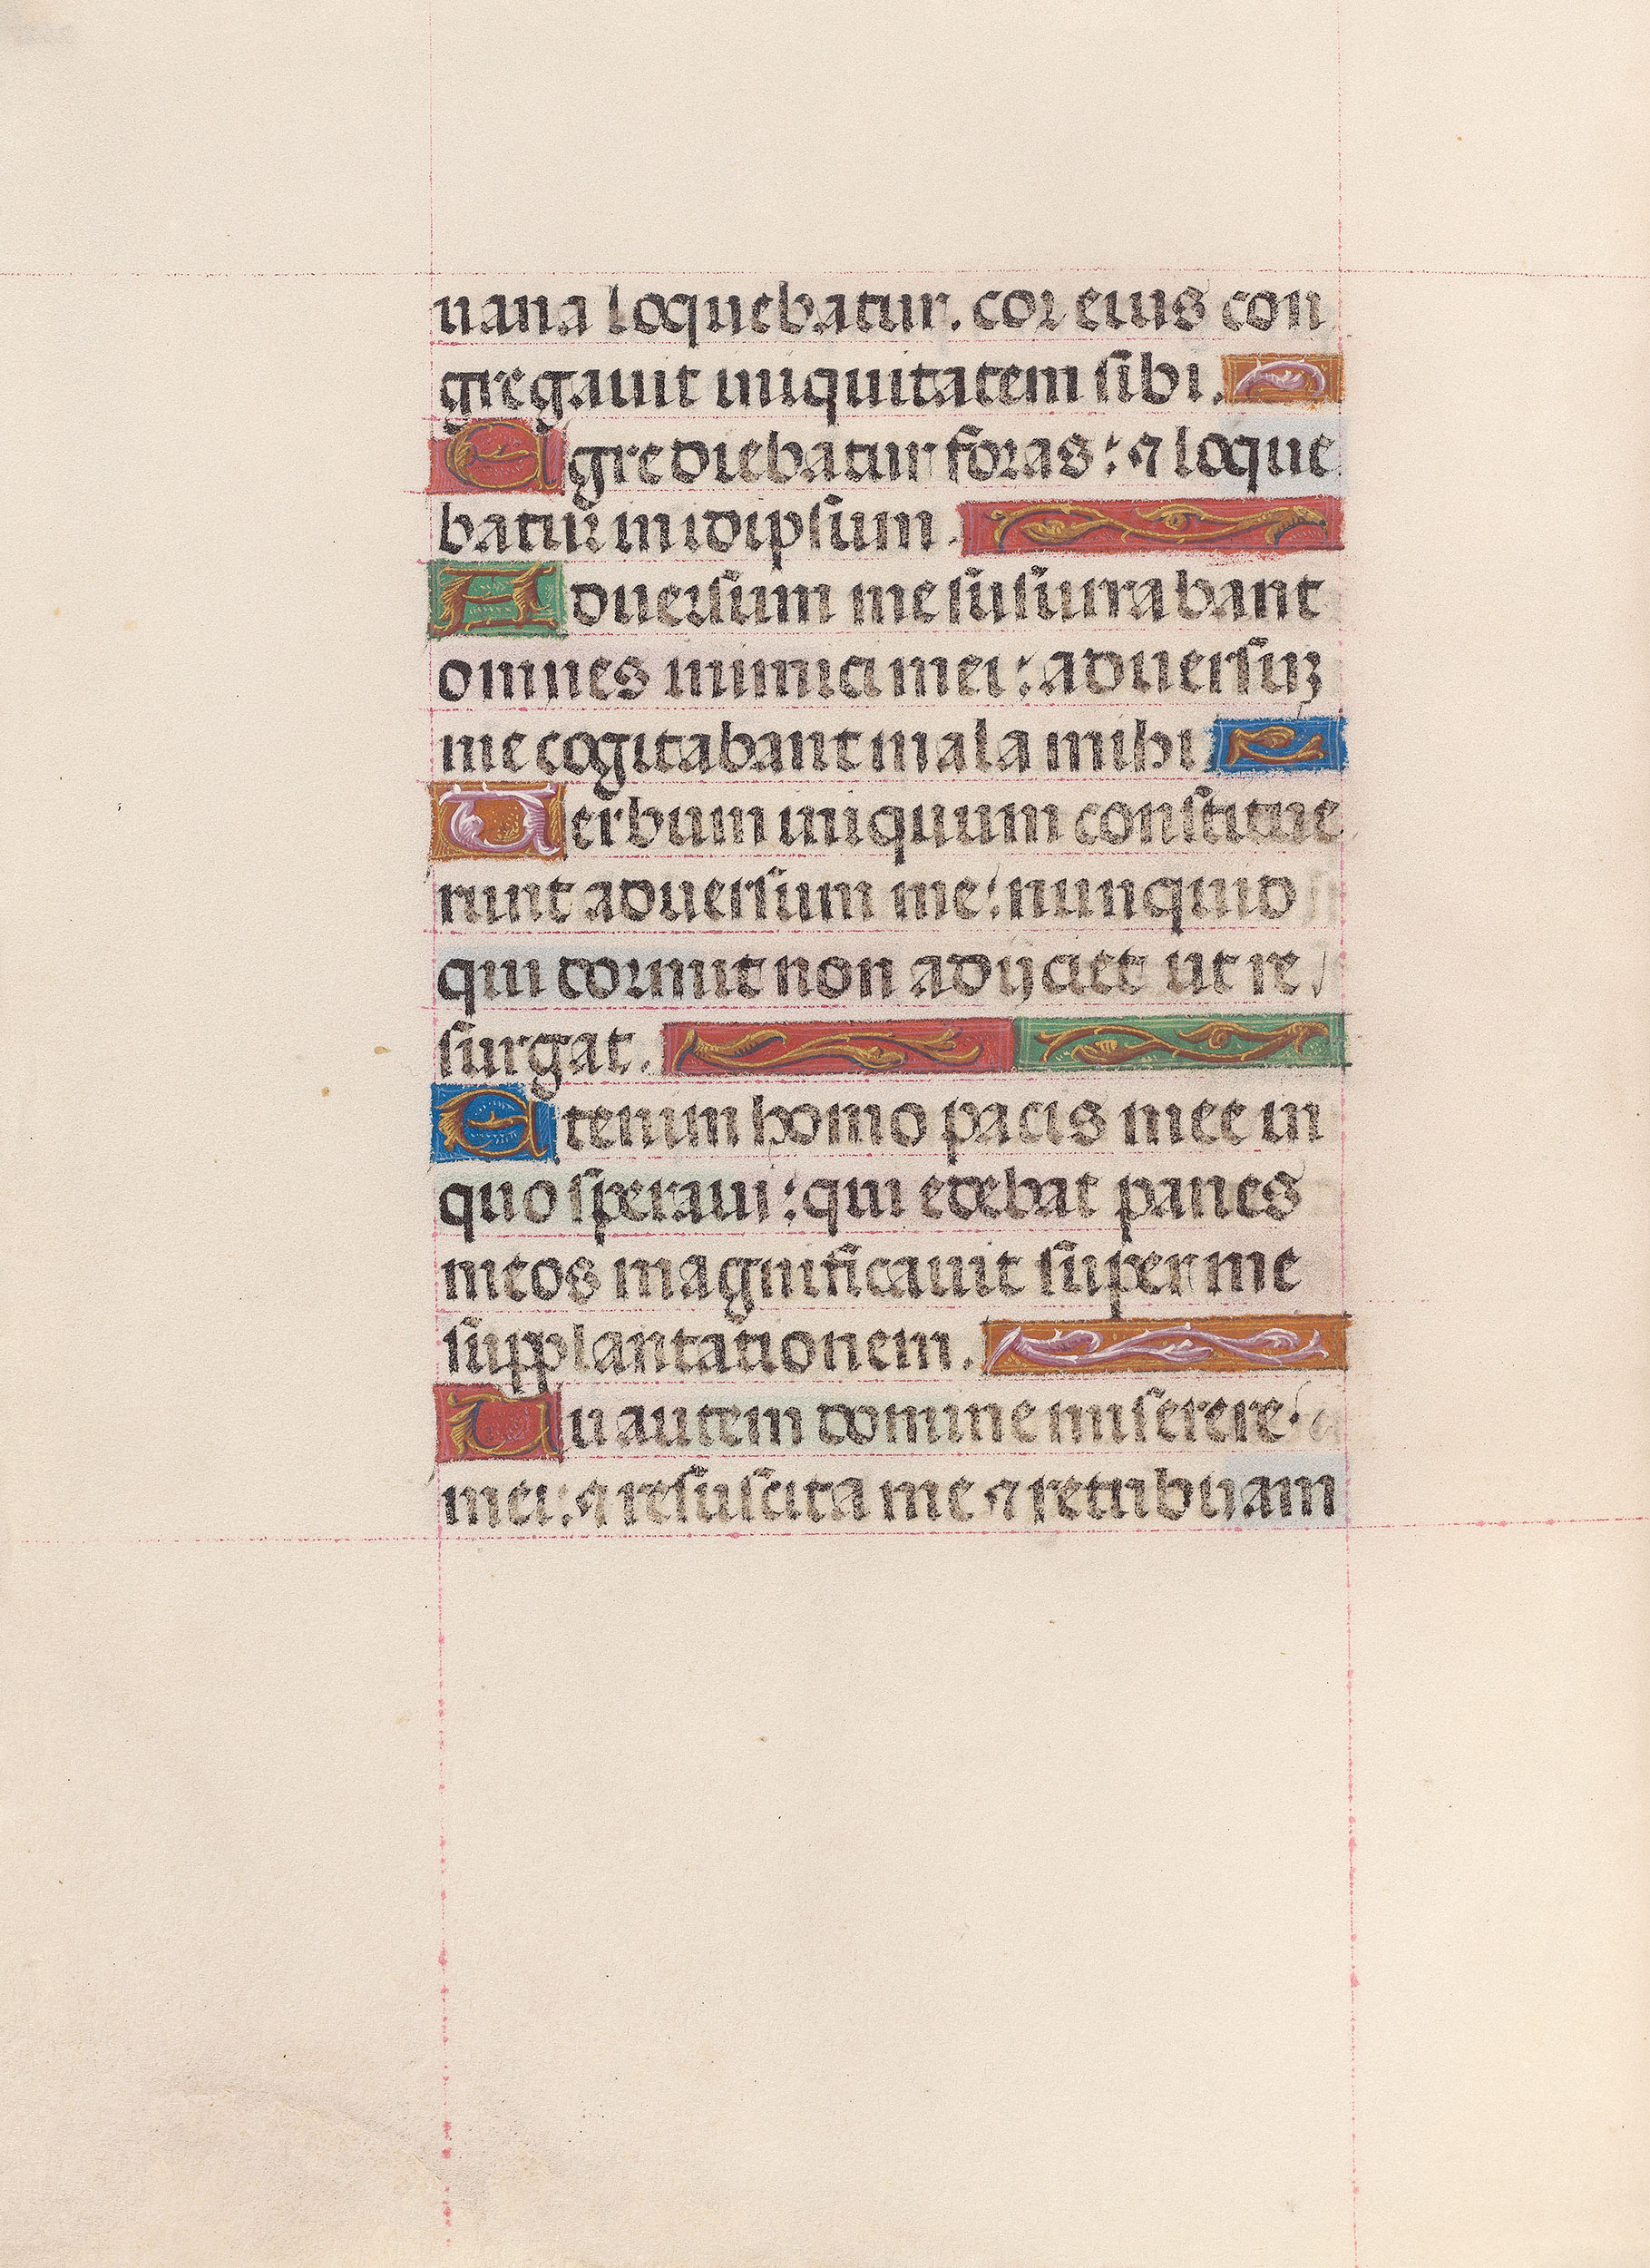 uana loquebatur. cor eius con
gregauit iniquitatem sibi.
Egrediebatur foras: ⁊ loque
batur in idipsum.
Aduersum me susurrabant
omnes inimici mei: aduersuꝫ
me cogitabant mala mihi
Uerbum iniquum constitue
runt aduersum me: nunquid
qui dormit non adijciet ut re
surgat.
Etenim homo pacis mee in
quo speraui: qui edebat panes
meos magnificauit super me
supplantationem.
Tu autem domine miserere
mei: ⁊ resuscita me ⁊ retribuam